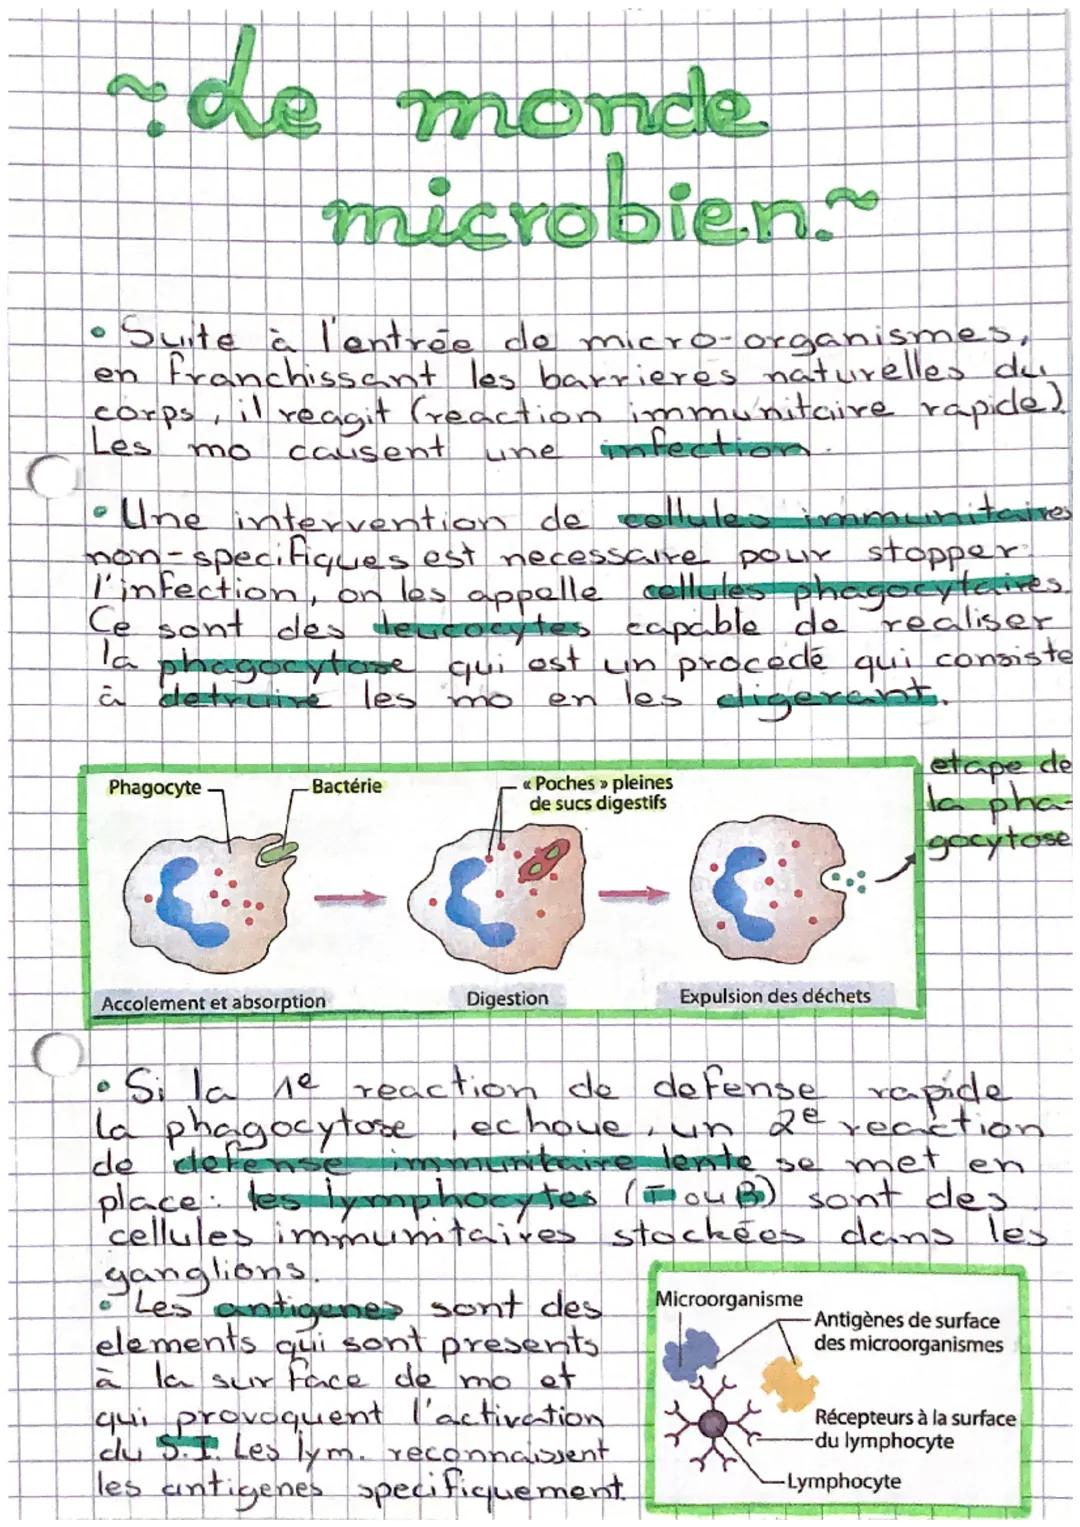 ~ Le monde
microbien.~
• Suite à l'entrée de micro-organismes,
en franchissant les barrieres naturelles du
corps, il reagit (reaction immunitaire rapide).
Les mo causent une infection.
• Une intervention de cellules immunitaires
non-specifiques est necessaire pour stopper
l'infection, on les appelle cellules phagocytaires.
Ce sont des leucocytes capable de realiser
la phagocytose qui est un procedé qui consiste
à detruire les mo en les digerant.
etape de
la pha-
gocytose
Phagocyte
Bactérie
« Poches » pleines
de sucs digestifs
Accolement et absorption
Digestion
Expulsion des déchets
• Si la 1e reaction de defense rapide
la phagocytose, echoue, un 2e reaction
de defense immunitaire lente se met en
place: les lymphocytes (T ou B) sont des
cellules immunitaires stockées dans les
ganglions.
• Les antigenes sont des
elements qui sont presents
à la surface de mo et
qui provoquent l'activation
du S.I. Les lym. reconnaissent
les antigenes specifiquement.
Microorganisme
Antigènes de surface
des microorganismes
Récepteurs à la surface
du lymphocyte
Lymphocyte